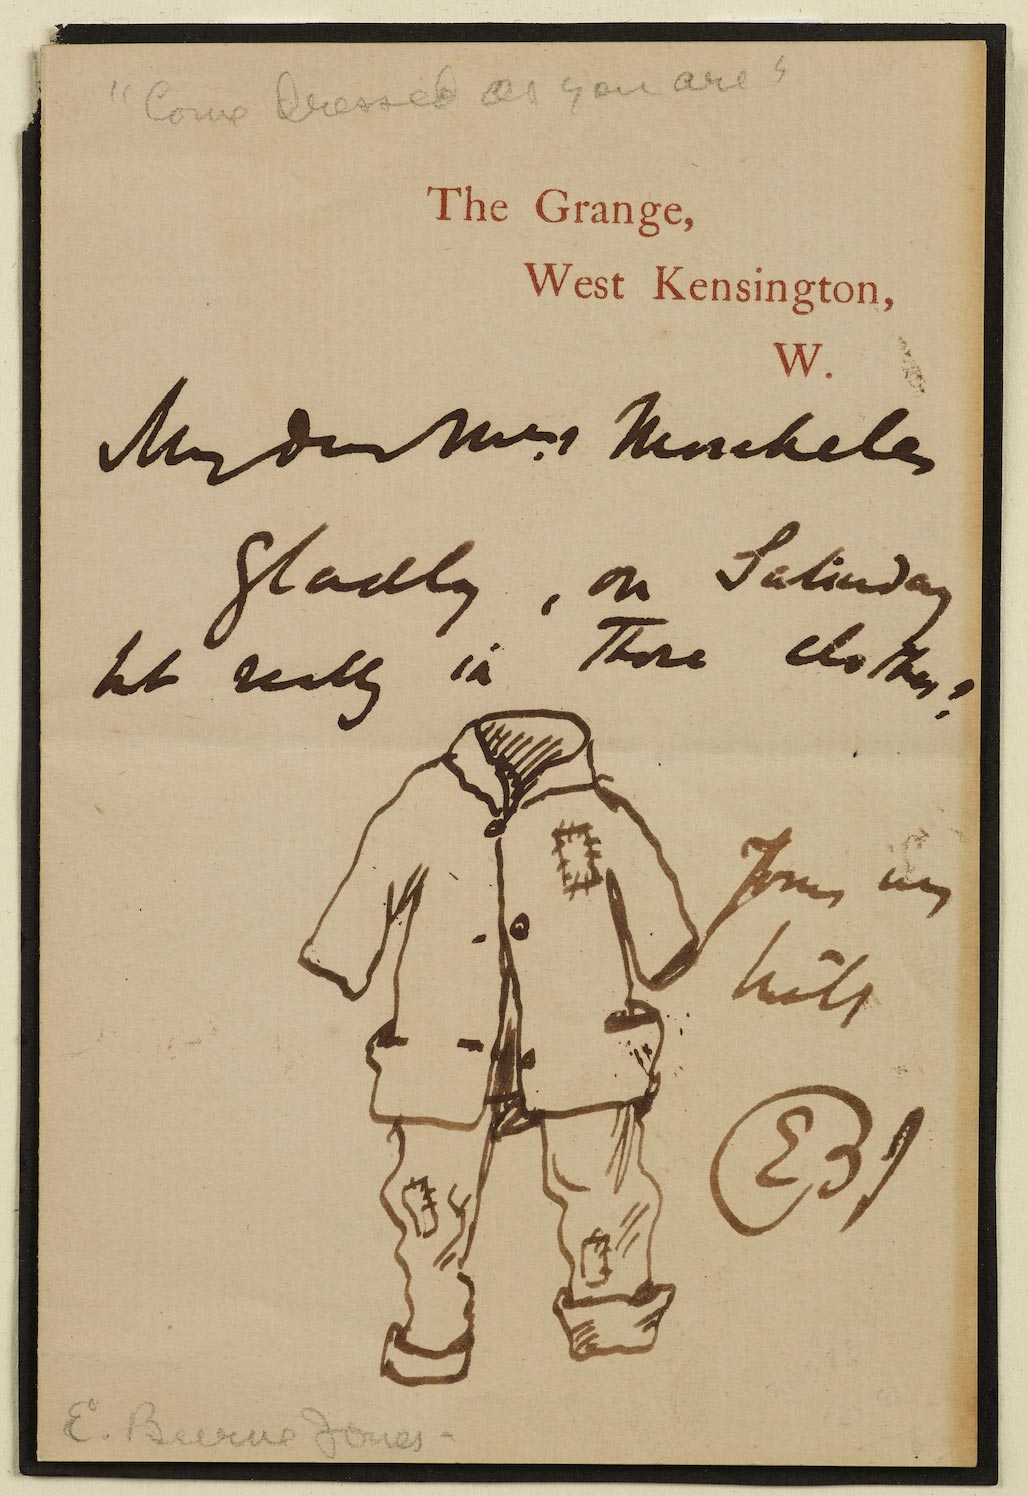 "Come dressed as you are"
The Grange,
West Kensington,
W.
My dear Mrs Moscheles
Gladly, on Saturday
but really in those clothes?
Yours
EBJ
E. Burne Jones-